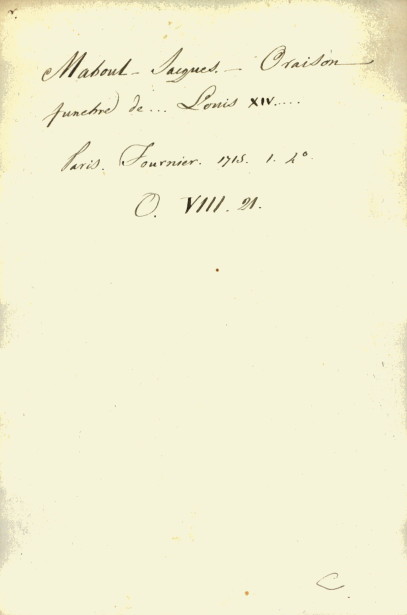 Maboul - Jacques. - Oraison
funebre de ... Louis XIV ....
Paris. Fournier. 1715. 1. 4°.
O. VIII. 21.
C